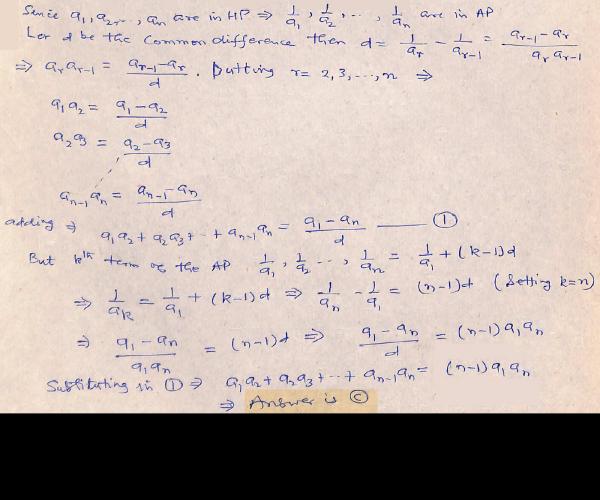 Sence a₁, a₂, ..., aₙ are in HP ⇒ 1/a₁, 1/a₂, ..., 1/aₙ are in AP
Let d be the Common difference then d = 1/aᵣ - 1/aᵣ₋₁ = (aᵣ₋₁ - aᵣ)/(aᵣ aᵣ₋₁)
⇒ aᵣaᵣ₋₁ = (aᵣ₋₁ - aᵣ)/d . Putting r = 2, 3, ..., n ⇒
a₁a₂ = (a₁ - a₂)/d
a₂a₃ = (a₂ - a₃)/d
aₙ₋₁aₙ = (aₙ₋₁ - aₙ)/d
adding ⇒ a₁a₂ + a₂a₃ + ... + aₙ₋₁aₙ = (a₁ - aₙ)/d —— ①
But kᵗʰ term of the AP 1/a₁, 1/a₂ ..., 1/aₙ = 1/a₁ + (k-1)d
⇒ 1/aₖ = 1/a₁ + (k-1)d ⇒ 1/aₙ - 1/a₁ = (n-1)d (Setting k=n)
⇒ (a₁ - aₙ)/(a₁aₙ) = (n-1)d ⇒ (a₁ - aₙ)/d = (n-1)a₁aₙ
Substituting in ① ⇒ a₁a₂ + a₂a₃ + ... + aₙ₋₁aₙ = (n-1)a₁aₙ
⇒ Answer is Ⓒ